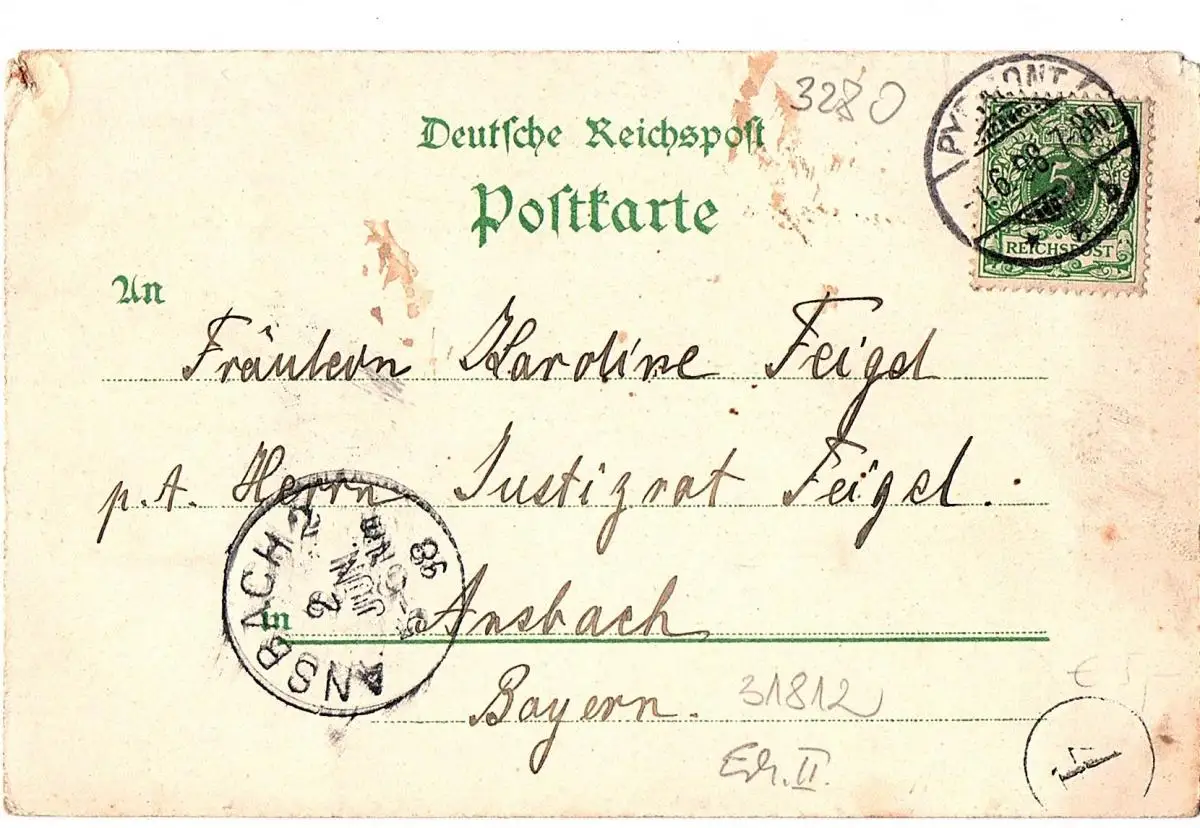 3280
Deutsche Reichspost
Postkarte
PYRMONT
1.6.98. 7-8N
5
REICHSPOST
An
Fräulein Karoline Feigel
p. A. Herrn Justizrat Feigel.
ANSBACH 2
2 JUN. 98
in Ansbach
Bayern.
31812
€ 5,-
1